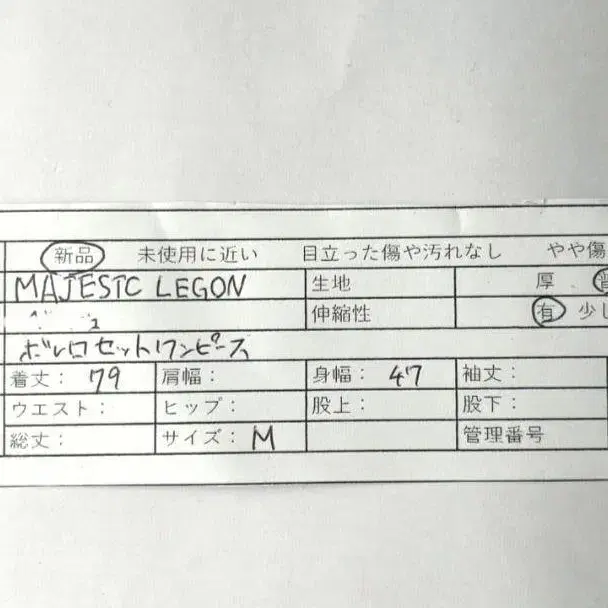 新品 未使用に近い 目立った傷や汚れなし やや傷
MAJESTC LEGON 生地 厚
伸縮性 有 少し
ボレロセットワンピース
着丈： 79 肩幅： 身幅： 47 袖丈：
ウエスト： ヒップ： 股上： 股下：
総丈： サイズ： M 管理番号